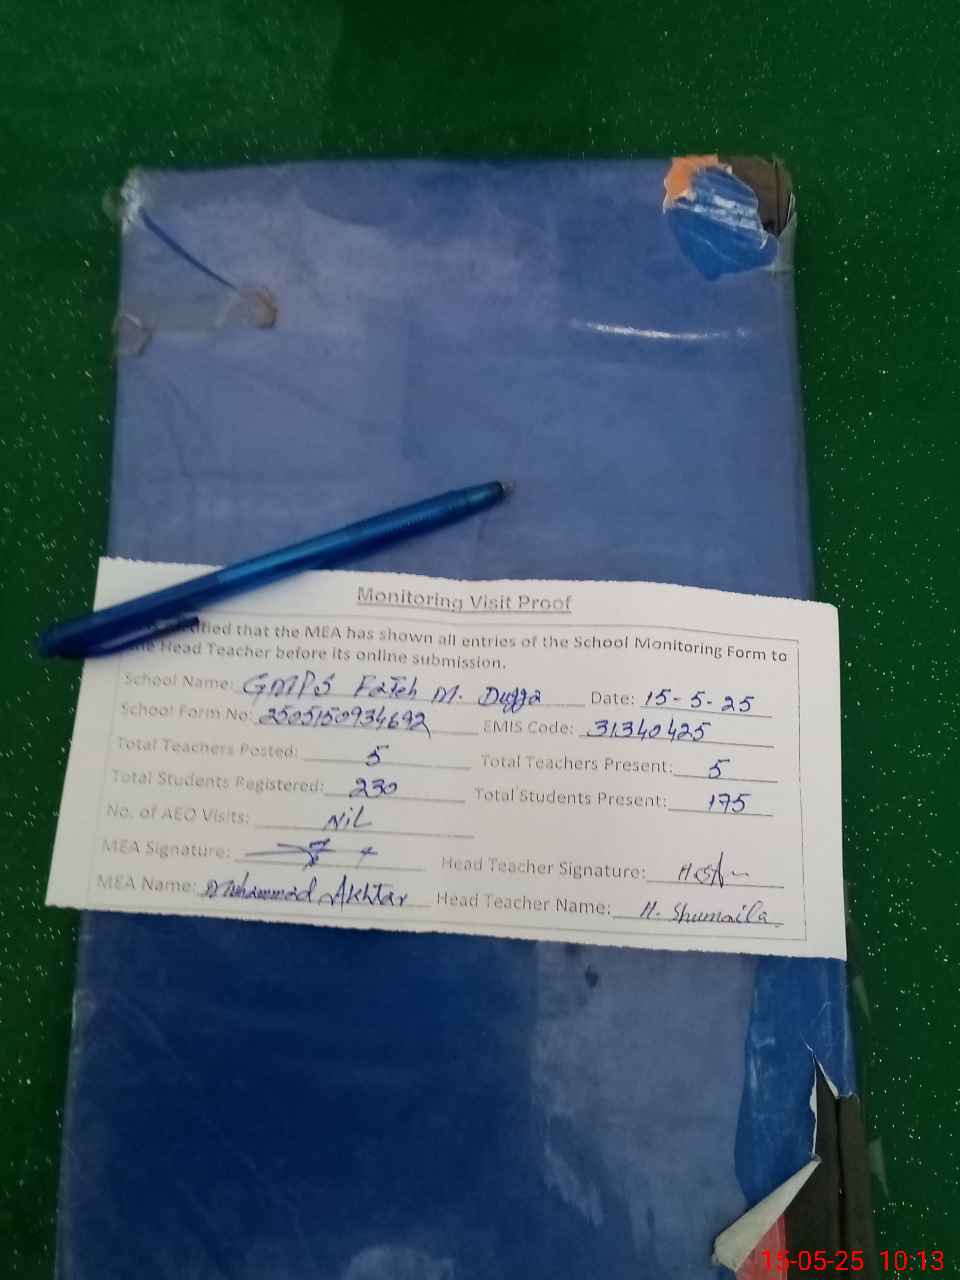 Monitoring Visit Proof
that the MEA has shown all entries of the School Monitoring Form to
Head Teacher before its online submission.
School Name: GMPS Fateh M. Dugga Date: 15-5-25
School Form No: 2505150934692 EMIS Code: 31340425
Total Teachers Posted: 5 Total Teachers Present: 5
Total Students Registered: 230 Total Students Present: 175
No. of AEO Visits: NiL
MEA Signature: Head Teacher Signature:
MEA Name: Muhammad Akhtar Head Teacher Name: H. Shumaila
15-05-25 10:13